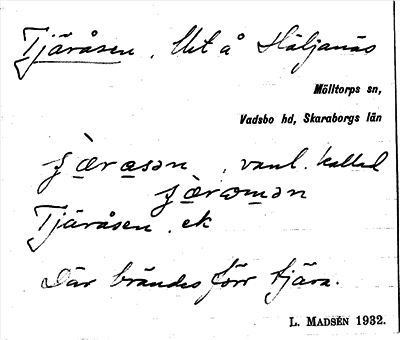 Tjäråsen, Ut å Häljanäs
Mölltorps sn,
Vadsbo hd, Skaraborgs län
, vanl. kallad
Tjäråsen. ek
Där brändes förr tjära.
L. MADSÉN 1932.